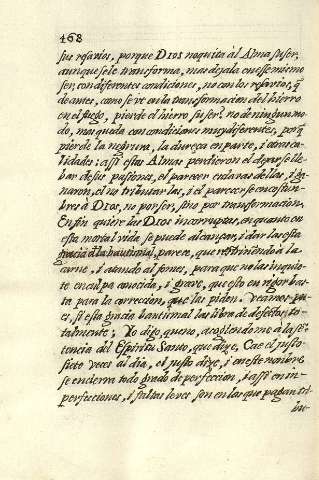 168
sus resarios, porque Dios no quita àl Alma su ser,
aunque se le transforma, mas dejala en esse mismo
ser, con diferentes condiciones, no con los resarios, q̃
de antes, como se vè en la transformacion del hierro
en el fuego, pierde el hierro su ser? no de ningun mo-
do, mas queda con condiciones muy diferentes, porq̃
pierde la negrura, la dureça en parte, i otras ca-
lidades: assi estas Almas perdieron el dejarse lle-
bar de sus pasiones, el parecer esclavas de ellas, i ga-
naron, el no tributarlas, i el parecerse en costum-
bres à Dios, no por ser, sino por transformacion.
En fin quiere las Dios incorruptas, en quanto en
esta mortal vida se puede alcançar, i dar les esta
gracia à la bautismal, parece, que restriñendo à la
carne, i atando al fomes, para que no las inquie-
te en culpa conocida, i grave, que esto en rigor bas-
ta para la correccion, que las piden. Veamos pu-
es, si esta gracia bautismal las libra de defectos to-
talmente; Yo digo, que no, acogiendome à la sẽ-
tencia del Espiritu Santo, que dize, Cae el justo
siete veces al dia, el justo dize, i en este nombre
se encierra todo grado de perfeccion, i assi en im-
perfecciones, i faltas leves son en las que pagan tri-
bu-